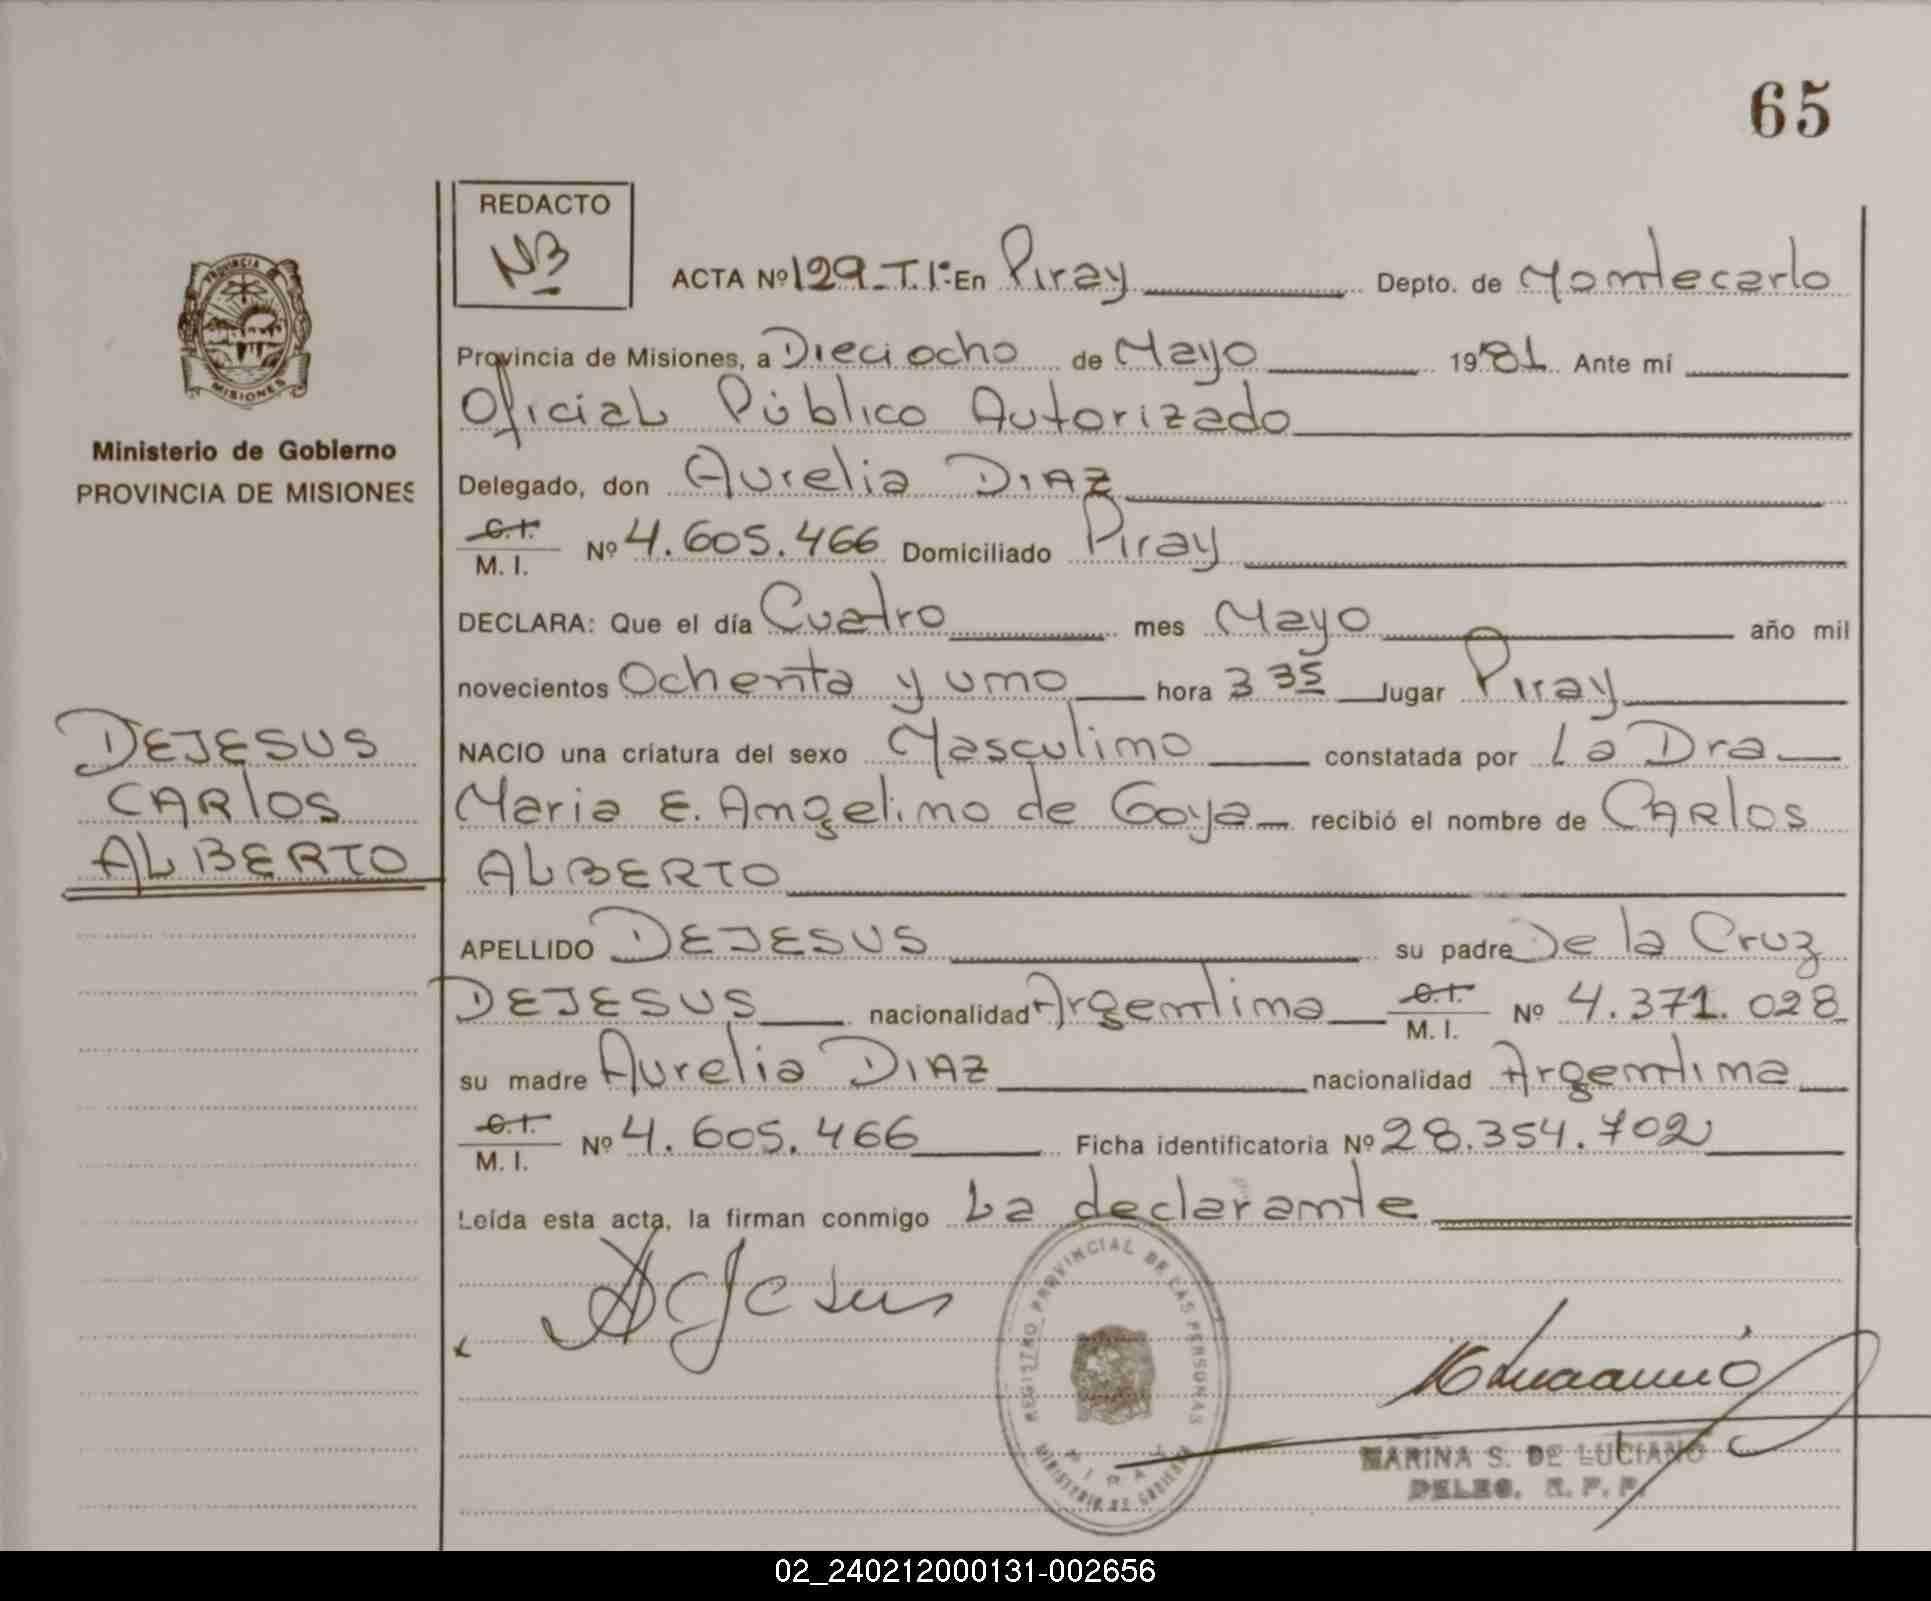 65
REDACTO
NB
ACTA Nº 129-T.Iº- En Piray Depto. de Montecarlo
PROVINCIA
MISIONES
Provincia de Misiones, a Dieciocho de Mayo 1981 Ante mí
Oficial Público Autorizado
Ministerio de Gobierno
PROVINCIA DE MISIONES
Delegado, don Aurelia DIAZ
C.I.
M. I. Nº 4.605.466 Domiciliado Piray
DECLARA: Que el día Cuatro mes Mayo año mil
novecientos Ochenta y uno hora 3 35 lugar Piray
DEJESUS
CARLOS
ALBERTO
NACIO una criatura del sexo Masculino constatada por La Dra
Maria E. Angelino de Goya recibió el nombre de CARLOS
ALBERTO
APELLIDO DEJESUS su padre De la Cruz
DEJESUS nacionalidad Argentina C.I. M. I. Nº 4.371.028
su madre Aurelia DIAZ nacionalidad Argentina
C.I.
M. I. Nº 4.605.466 Ficha identificatoria Nº 28.354.702
Leída esta acta, la firman conmigo La declarante
REGISTRO PROVINCIAL DE LAS PERSONAS
PIRAY
MINISTERIO DE GOBIERNO
MARINA S. DE LUCIANO
DELEG. R. P. P.
02_240212000131-002656